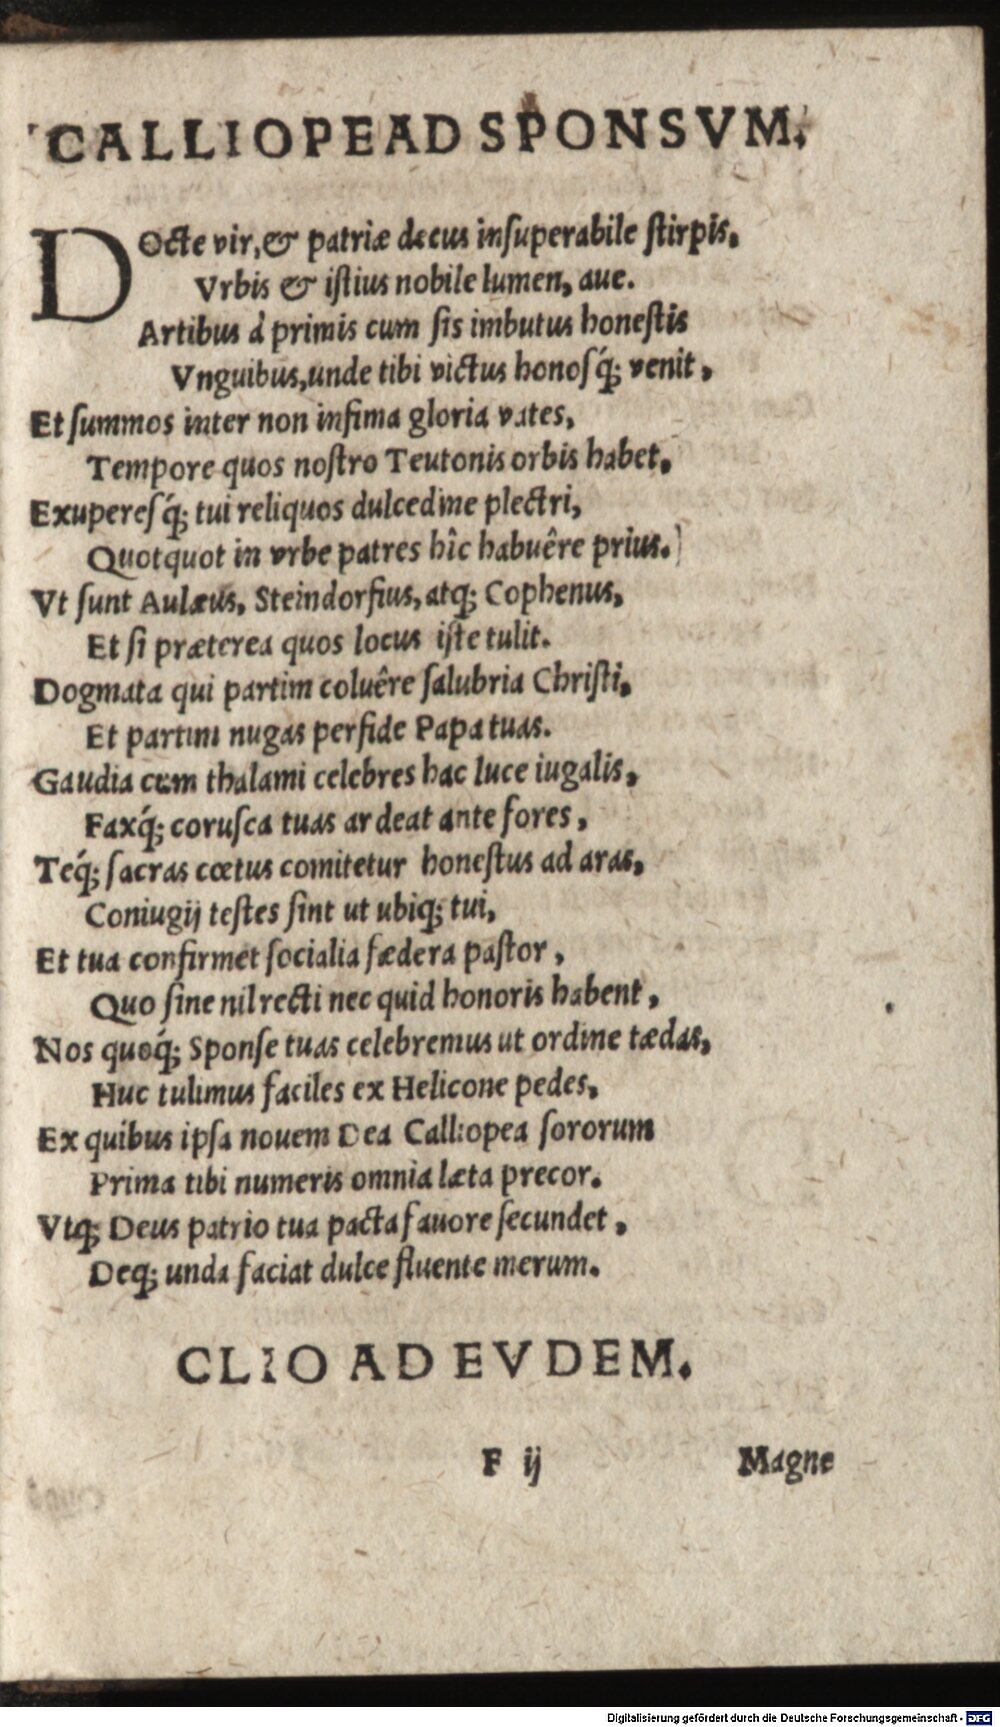 CALLIOPE AD SPONSVM.
DOcte vir, & patriæ decus insuperabile stirpis,
Vrbis & istius nobile lumen, aue.
Artibus à primis cum sis imbutus honestis
Vnguibus, unde tibi victus honosq́; venit,
Et summos inter non infima gloria vates,
Tempore quos nostro Teutonis orbis habet,
Exuperesq́; tui reliquos dulcedine plectri,
Quotquot in vrbe patres hîc habuêre prius.)
Vt sunt Aulæus, Steindorfius, atq; Cophenus,
Et si præterea quos locus iste tulit.
Dogmata qui partim coluêre salubria Christi,
Et partim nugas perfide Papa tuas.
Gaudia cum thalami celebres hac luce iugalis,
Faxq́; corusca tuas ardeat ante fores,
Teq́; sacras cœtus comitetur honestus ad aras,
Coniugij testes sint ut ubiq; tui,
Et tua confirmet socialia fædera pastor,
Quo sine nil recti nec quid honoris habent,
Nos quoq́; Sponse tuas celebremus ut ordine tædas,
Huc tulimus faciles ex Helicone pedes,
Ex quibus ipsa nouem Dea Calliopea sororum
Prima tibi numeris omnia læta precor.
Vtq; Deus patrio tua pacta fauore secundet,
Deq; unda faciat dulce fluente merum.
CLIO AD EVDEM.
F ij Magne
Digitalisierung gefördert durch die Deutsche Forschungsgemeinschaft - DFG